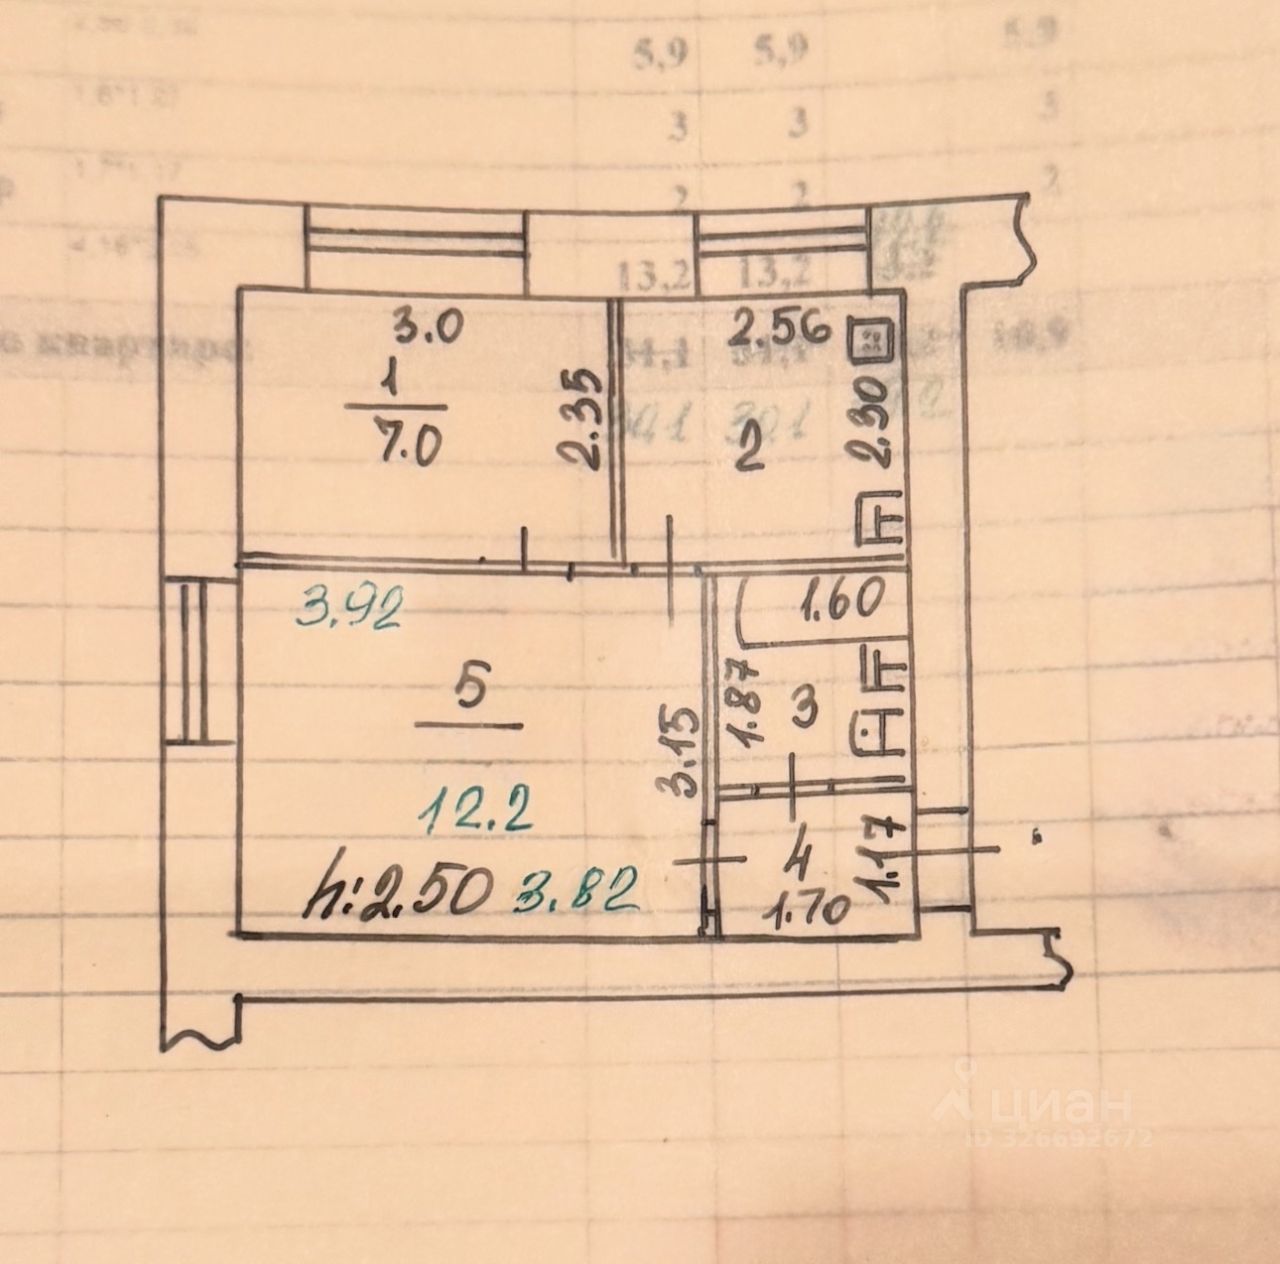 5,9 5,9 5,9
3 3 3
2 2 2
13,2 13,2
квартире
3.0
1
7.0
2.35
2.56
2
2.30
3.92
5
12.2
h:2.50 3.82
3.15
1.60
1.87
3
4
1.70
1.17
циан
ID 326692672